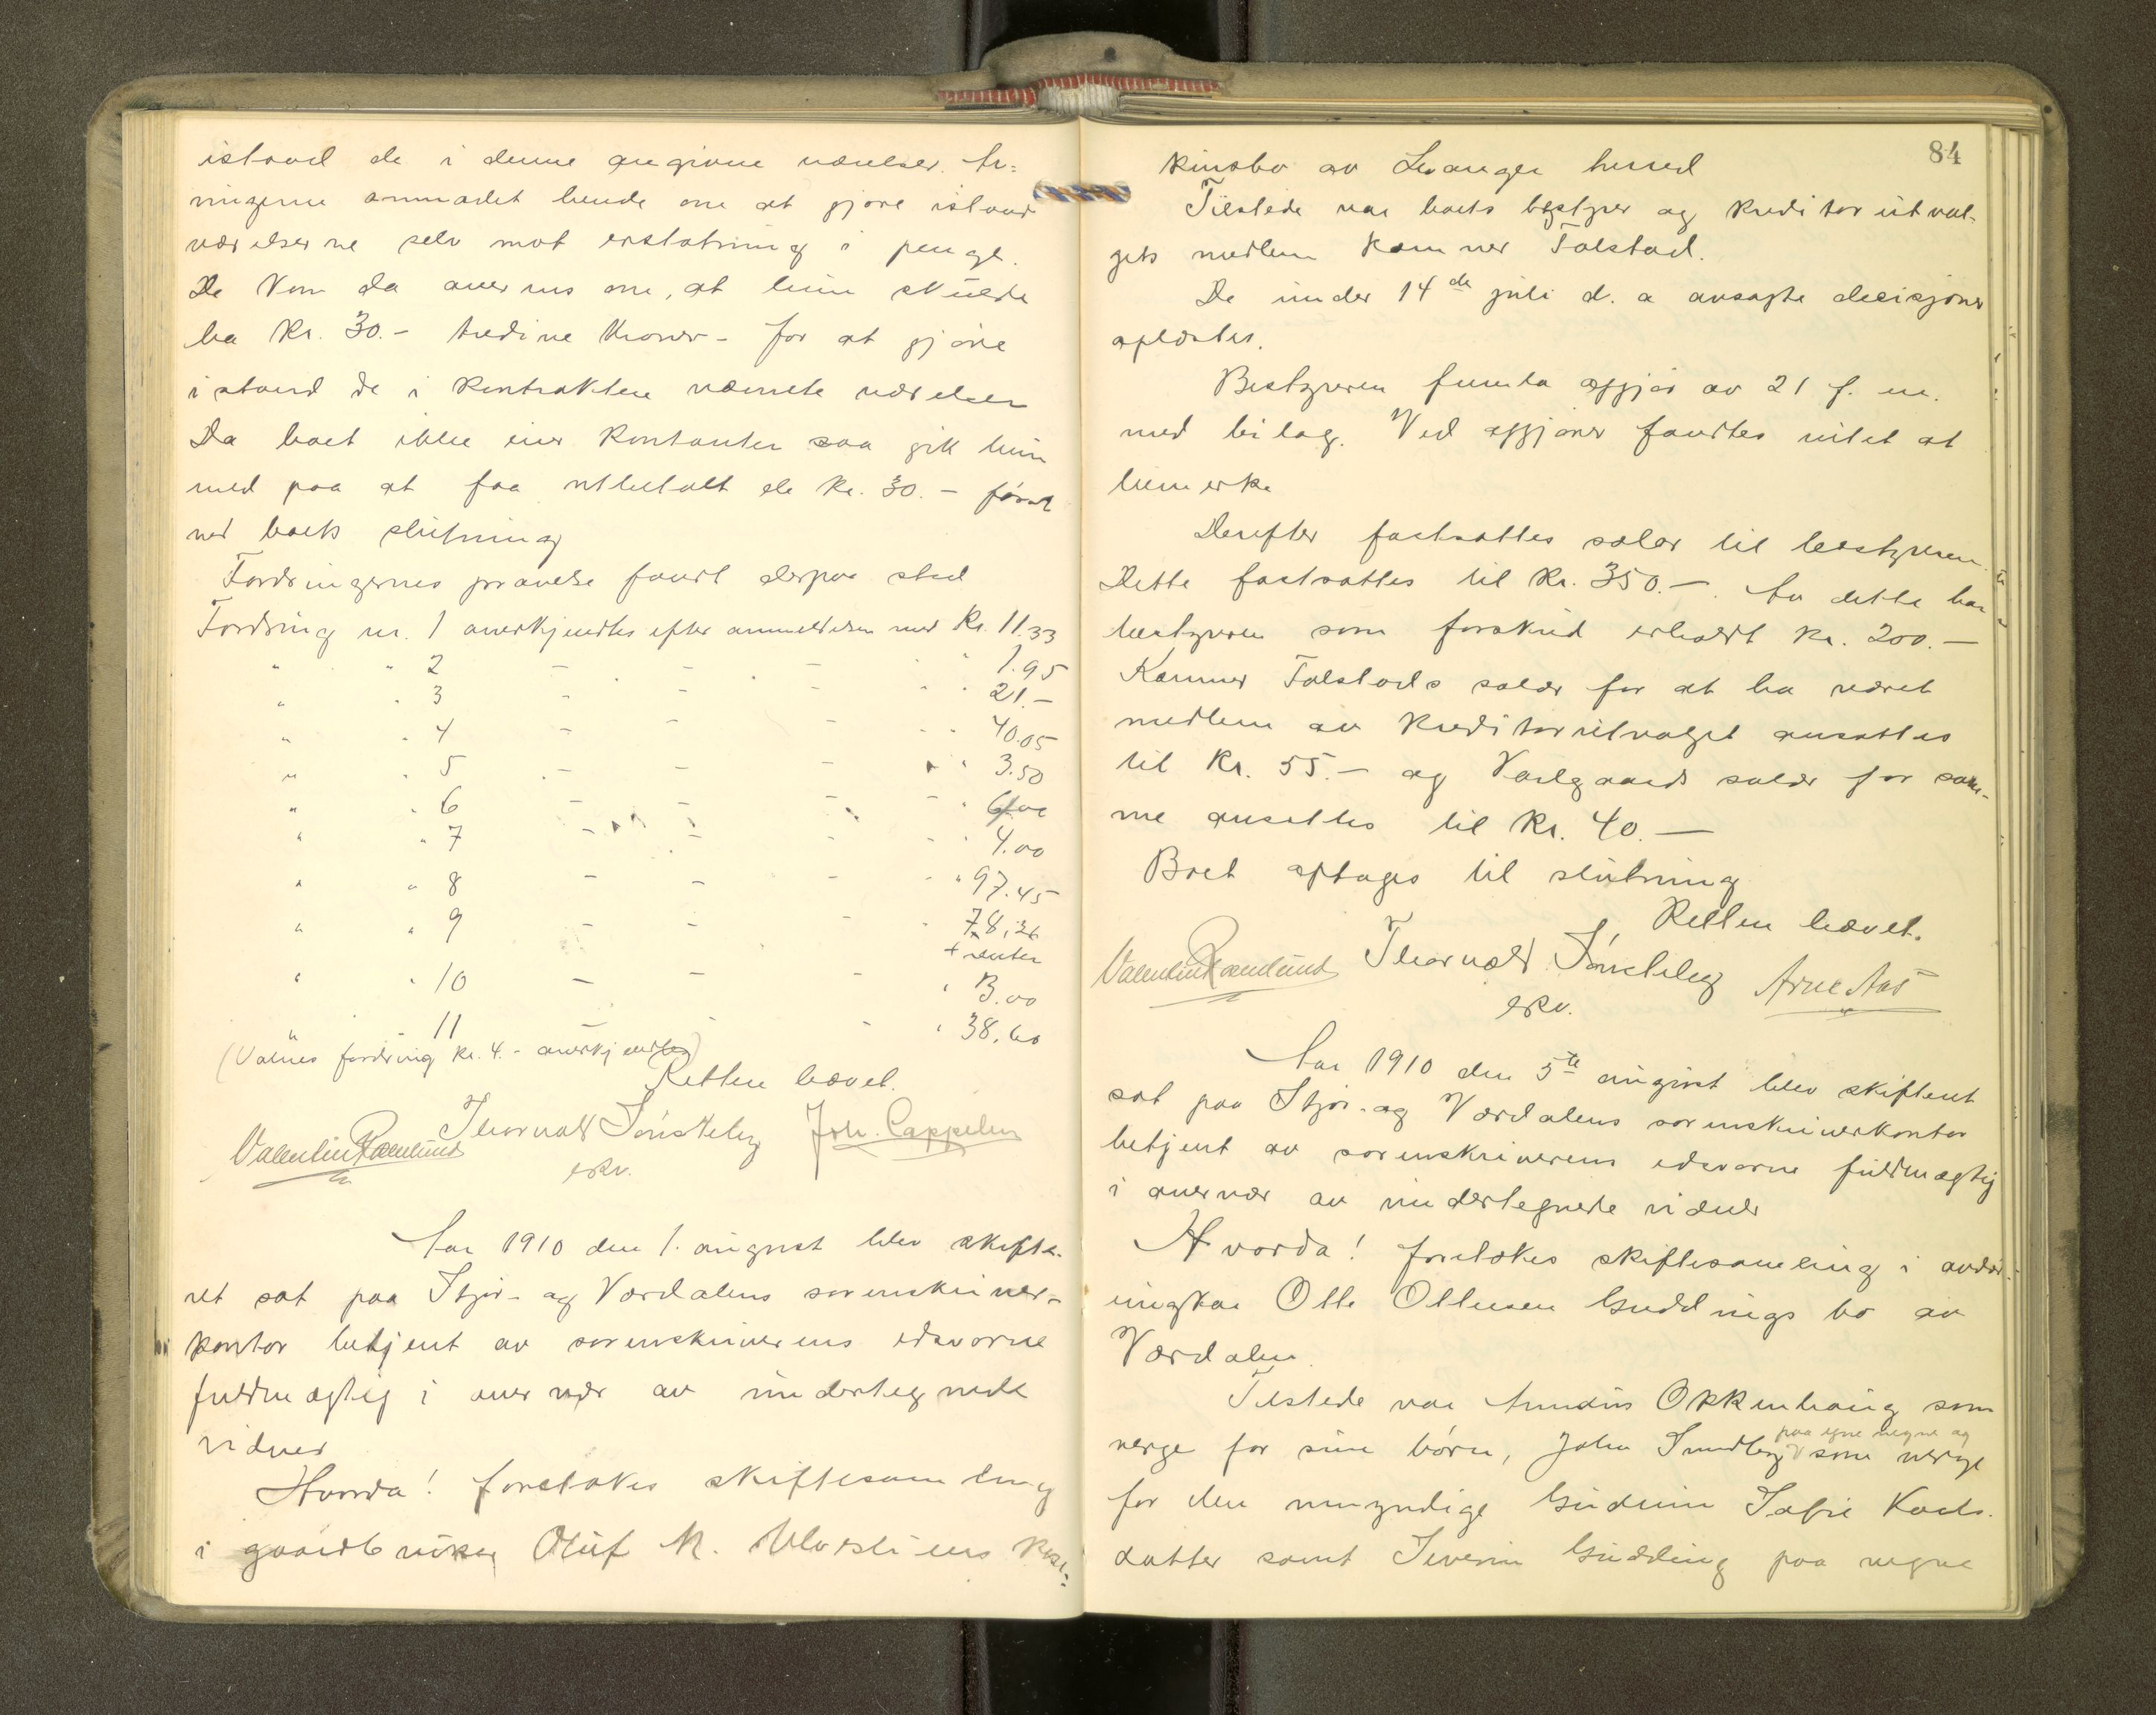 istand de i denne angivne værelser. Ar=
vingerne anmodet hende om at gjøre istand
værelserne selv mot erstatning i penge.
De kom da overens om, at hun skulde
ha Kr. 30.- tredive kroner - for at gjøre
istand de i kontrakten nævnte værelser
Da boet ikke eier kontanter saa gik hun
med paa at faa utbetalt de kr. 30.- først
ved boets slutning
Fordringernes prøvelse fandt derpaa sted
Fordring nr. 1 anerkjendtes efter anmeldelsen med Kr. 11.33
" " 2 - - - " " 1.95
" " 3 - - - " " 21.-
" " 4 - - - " " 40.05
" " 5 - - - " " 3.50
" " 6 - - - " "
" " 7 - - - " " 4.00
" " 8 - - - " " 97.45
" " 9 - - - " 78,36
+ renter
" " 10 - - - " 3.00
" " 11 - - - " 38,60
(Valnes fordring kr. 4.- anerkjendtes)
Retten hævet.
Valentin Ramlund Thorvald Sönsteby Joh. Cappelen
eskv.
Aar 1910 den 1. august blev skifte-
ret sat paa Stjør- og Værdalens sorenskriver-
kontor betjent av sorenskriverens edsvorne
fuldmægtig i overvær av undertegnede
vidner
Hvorda! foretokes skiftesamling
i gaardbruker Oluf M.
84
kursbo av Levanger herred
Tilstede var boets bestyrer og kreditorutval-
gets medlem kæmner Tolstad.
De under 14de juli d. a avsagte decisjoner
oplæstes.
Bestyreren fremla opgjør av 21 f. m.
med bilag. Ved opgjøret fandtes intet at
bemerke
Derefter fastsattes salær til bestyreren.
Dette fastsattes til Kr. 350.-. Av dette har
bestyreren som forskud erholdt kr. 200.-
Kæmner Tolstads salær for at ha været
medlem av kreditorutvalget ansattes
til Kr. 55.- og salær for sam-
me ansattes til Kr. 40.-
Boet optages til slutning
Retten hævet.
Valentin Ramlund Thorvald Sönsteby Arne Aas
eskv.
Aar 1910 den 5te august blev skifteret
sat paa Stjør- og Værdalens sorenskriverkontor
betjent av sorenskriverens edsvorne fuldmægtig
i overvær av undertegnede vidner
Hvorda! foretokes skiftesamling i avdød
ungkar Olle Ollesen Guddings bo av
Værdalen.
Tilstede var Amdus Okkenhaug som
verge for sine børn, John Smedby paa egne vegne og som verge
for den umyndige Gudrun Sofie
datter samt Severin Gudding paa vegne